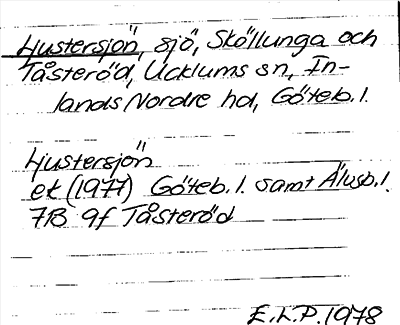 Hustersjön, sjö, Sköllunga och
Tåsteröd, Ucklums sn, In-
lands Nordre hd, Göteb. l.
Hustersjön
ek (1977) Göteb. l. samt Älvsb. l.
7B 9f Tåsteröd
E.L.P. 1978